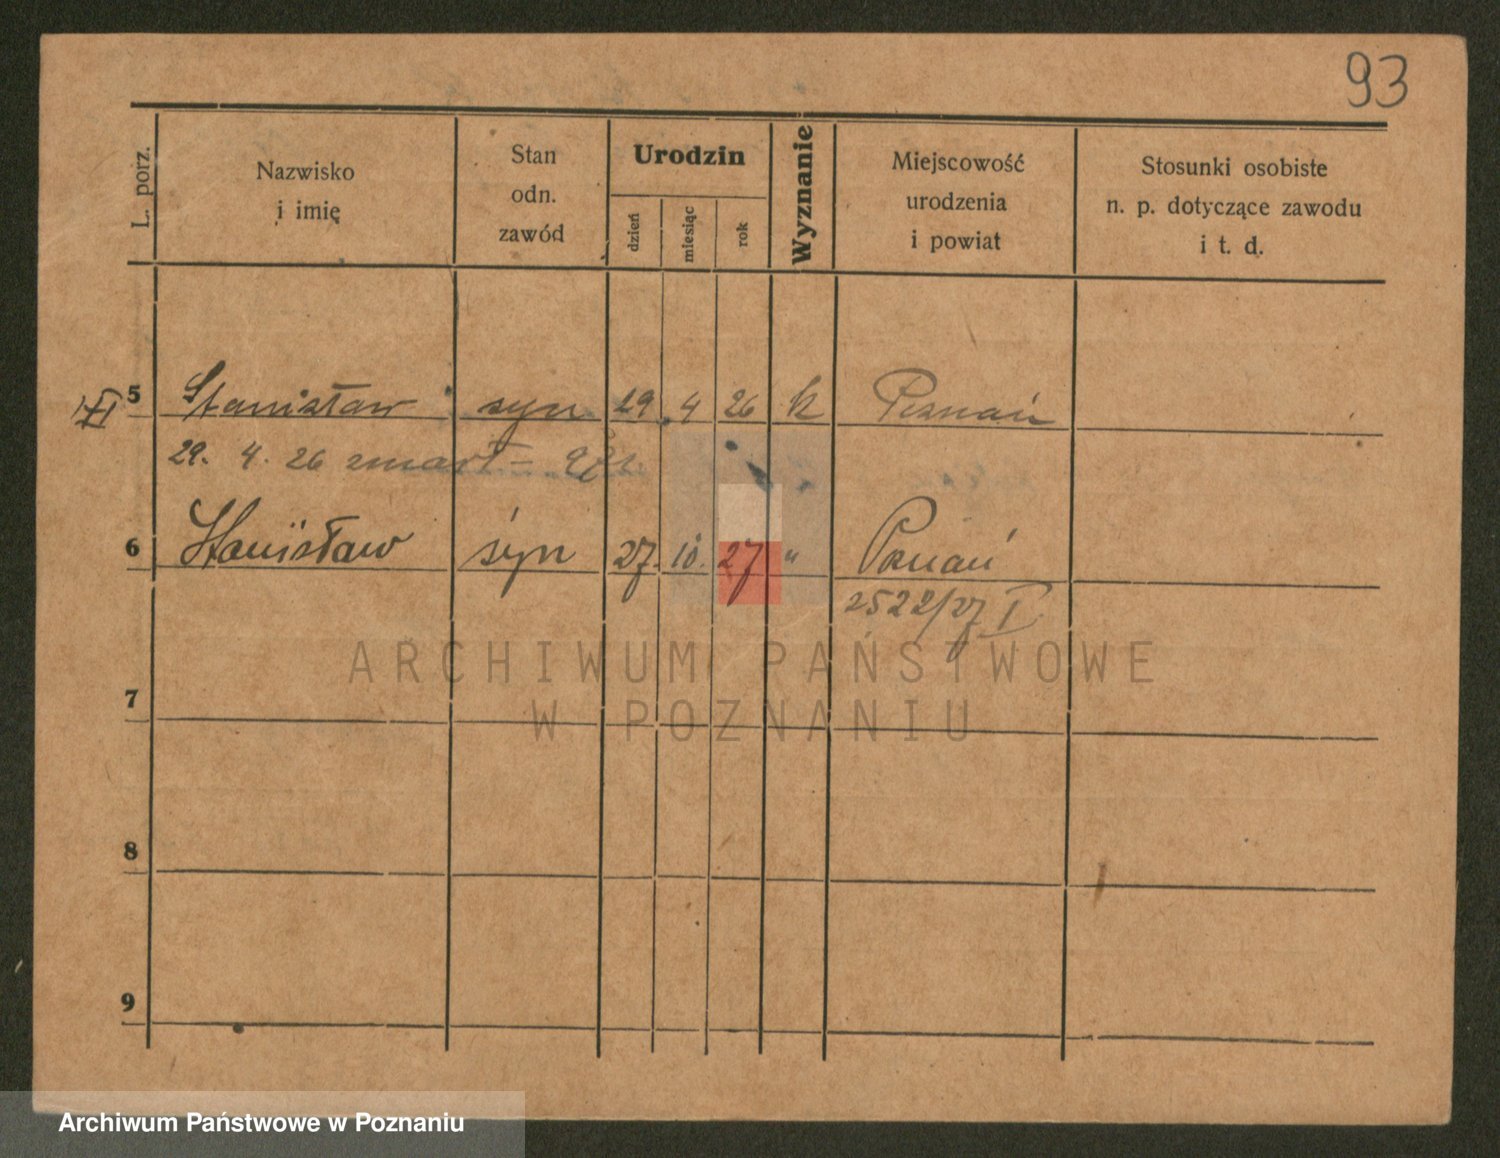 93
L. porz.
Nazwisko
i imię
Stan
odn.
zawód
Urodzin
dzień
miesiąc
rok
Wyznanie
Miejscowość
urodzenia
i powiat
Stosunki osobiste
n. p. dotyczące zawodu
i t. d.
5 Stanisław syn 29 4 26 k Poznań
29. 4. 26 zmarł =
6 Stanisław syn 27. 10. 27 " Poznań
2522/27 I
ARCHIWUM PAŃSTWOWE
W POZNANIU
7
8
9
Archiwum Państwowe w Poznaniu